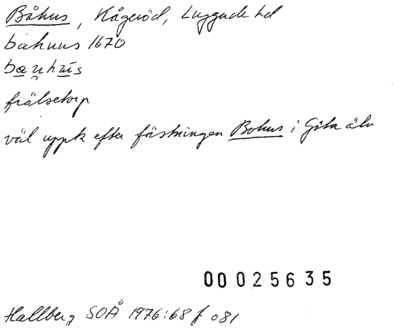 Båhus, Kågeröd, Luggude hd
bahuus 1670
bauhus
frälsetorp
väl uppk efter fästningen Bohus i Göta älv
00025635
Hallberg SOÅ 1976:68 f 081